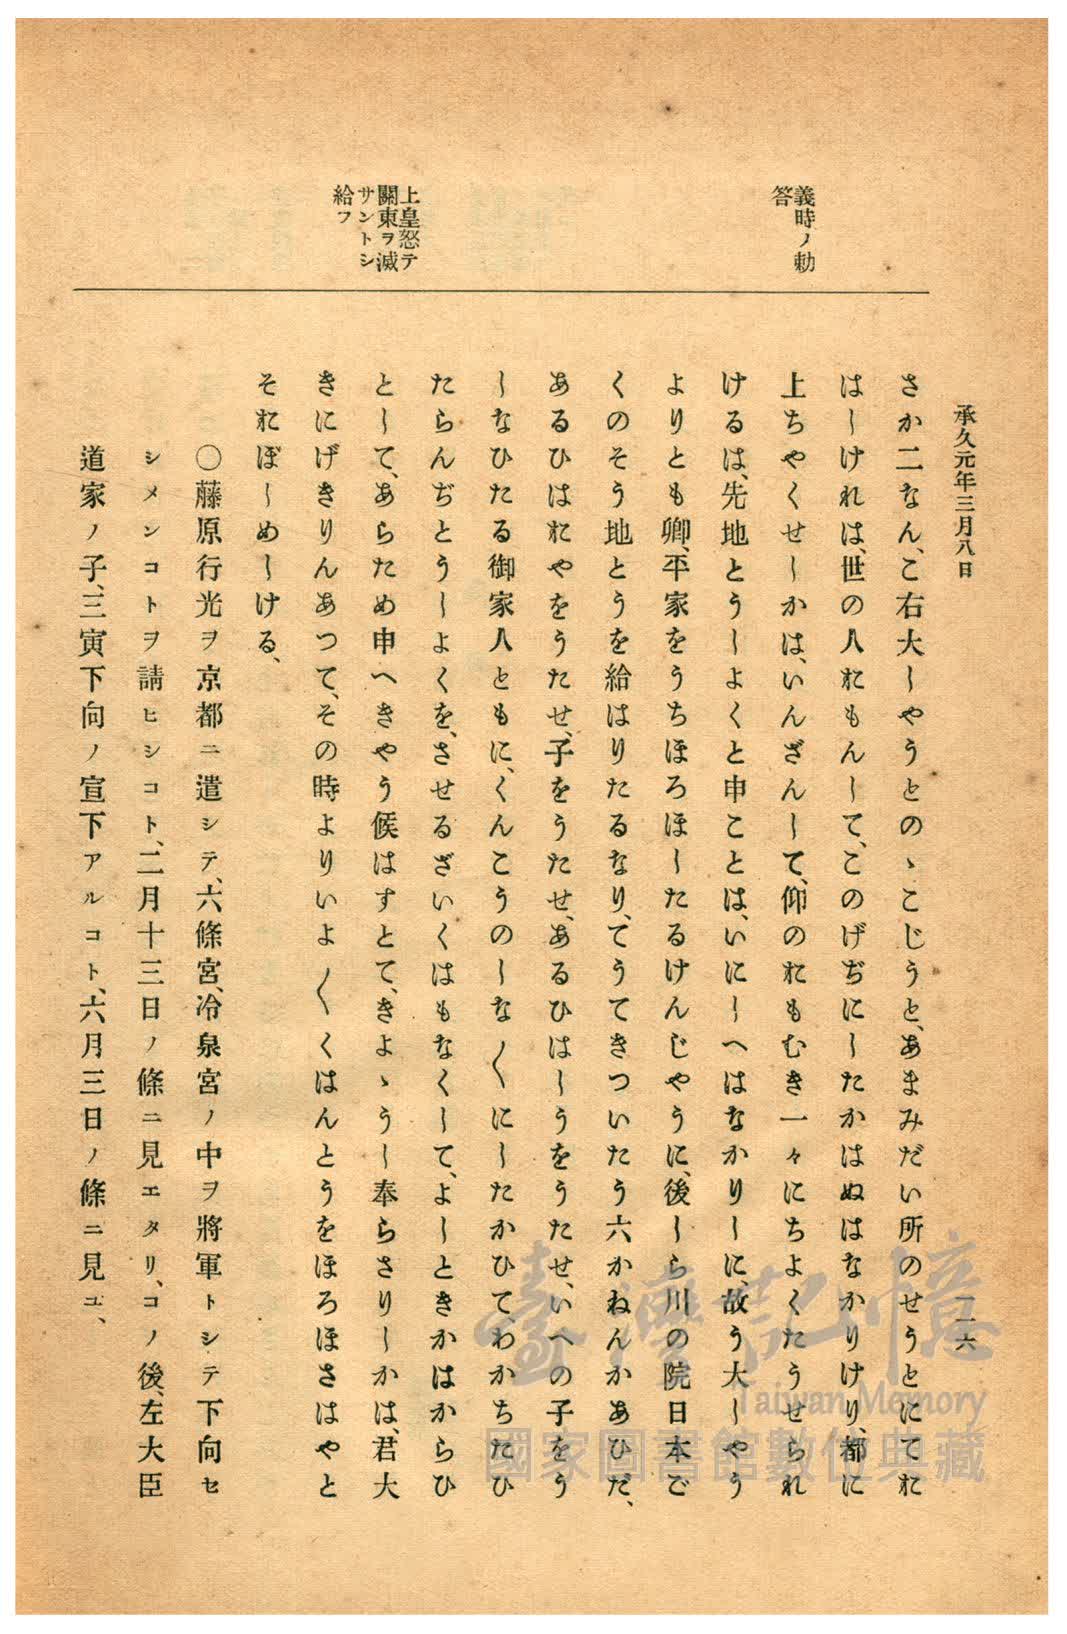 承久元年三月八日
一一六
義時ノ勅
答
上皇怒テ
關東ヲ滅
サントシ
給フ
さか二なん、こ右大しやうとのゝこじうと、あまみだい所のせうとにてお
はしけれは、世の人おもんして、このげぢにしたかはぬはなかりけり、都に
上ちやくせしかは、いんざんして、仰のおもむき一々にちよくたうせられ
けるは、先地とうしよくと申ことは、いにしへはなかりしに、故う大しやう
よりとも卿、平家をうちほろほしたるけんじやうに、後しら川の院日本ご
くのそう地とうを給はりたるなり、てうてきついたう六かねんかあひだ、
あるひはおやをうたせ、子をうたせ、あるひはしうをうたせ、いへの子をう
しなひたる御家人ともに、くんこうのしな〱にしたかひて、わかちたひ
たらんぢとうしよくを、させるざいくはもなくして、よしときかはからひ
として、あらため申へきやう候はすとて、きよゝうし奉らさりしかは、君大
きにげきりんあつて、その時よりいよ〱くはんとうをほろほさはやと
そおぼしめしける、
○藤原行光ヲ京都ニ遣シテ、六條宮、冷泉宮ノ中ヲ將軍トシテ下向セ
シメンコトヲ請ヒシコト、二月十三日ノ條ニ見エタリ、コノ後、左大臣
道家ノ子、三寅下向ノ宣下アルコト、六月三日ノ條ニ見ユ、
臺灣記憶
Taiwan Memory
國家圖書館數位典藏